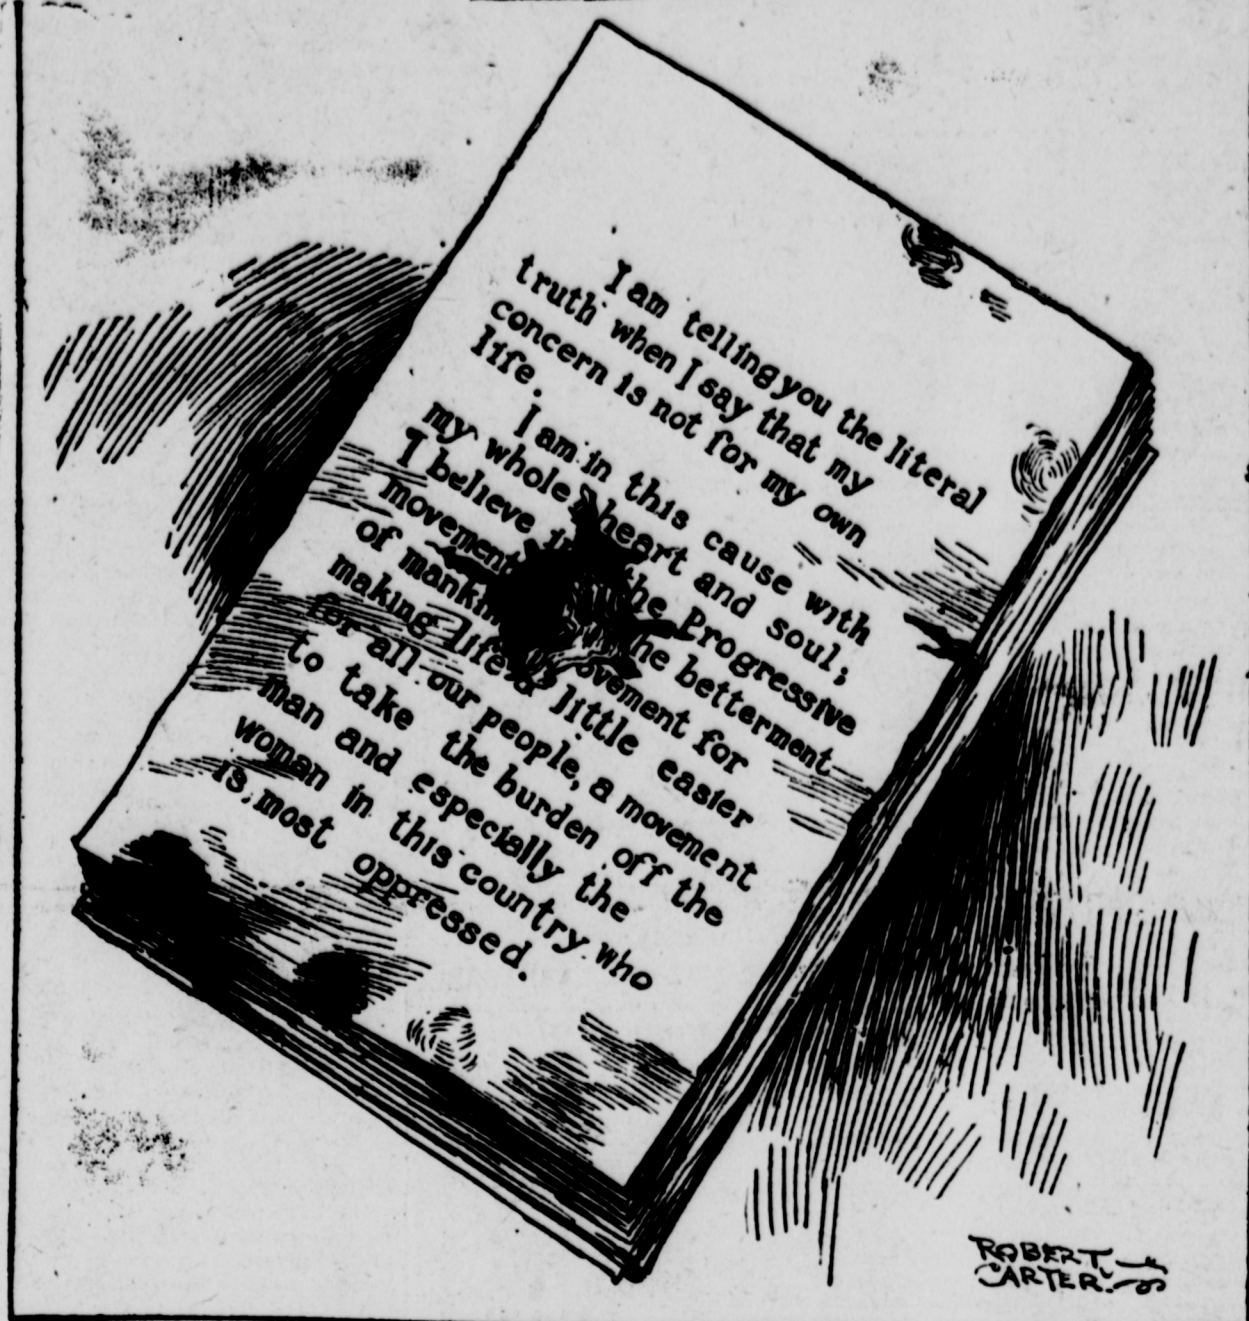 I am telling you the literal
truth when I say that my
concern is not for my own
life.
I am in this cause with
my whole heart and soul;
I believe in the Progressive
movement he betterment
of mankin ovement for
making life a little easier
for all our people, a movement
to take the burden off the
man and especially the
woman in this country who
is most oppressed.
ROBERT
CARTER.